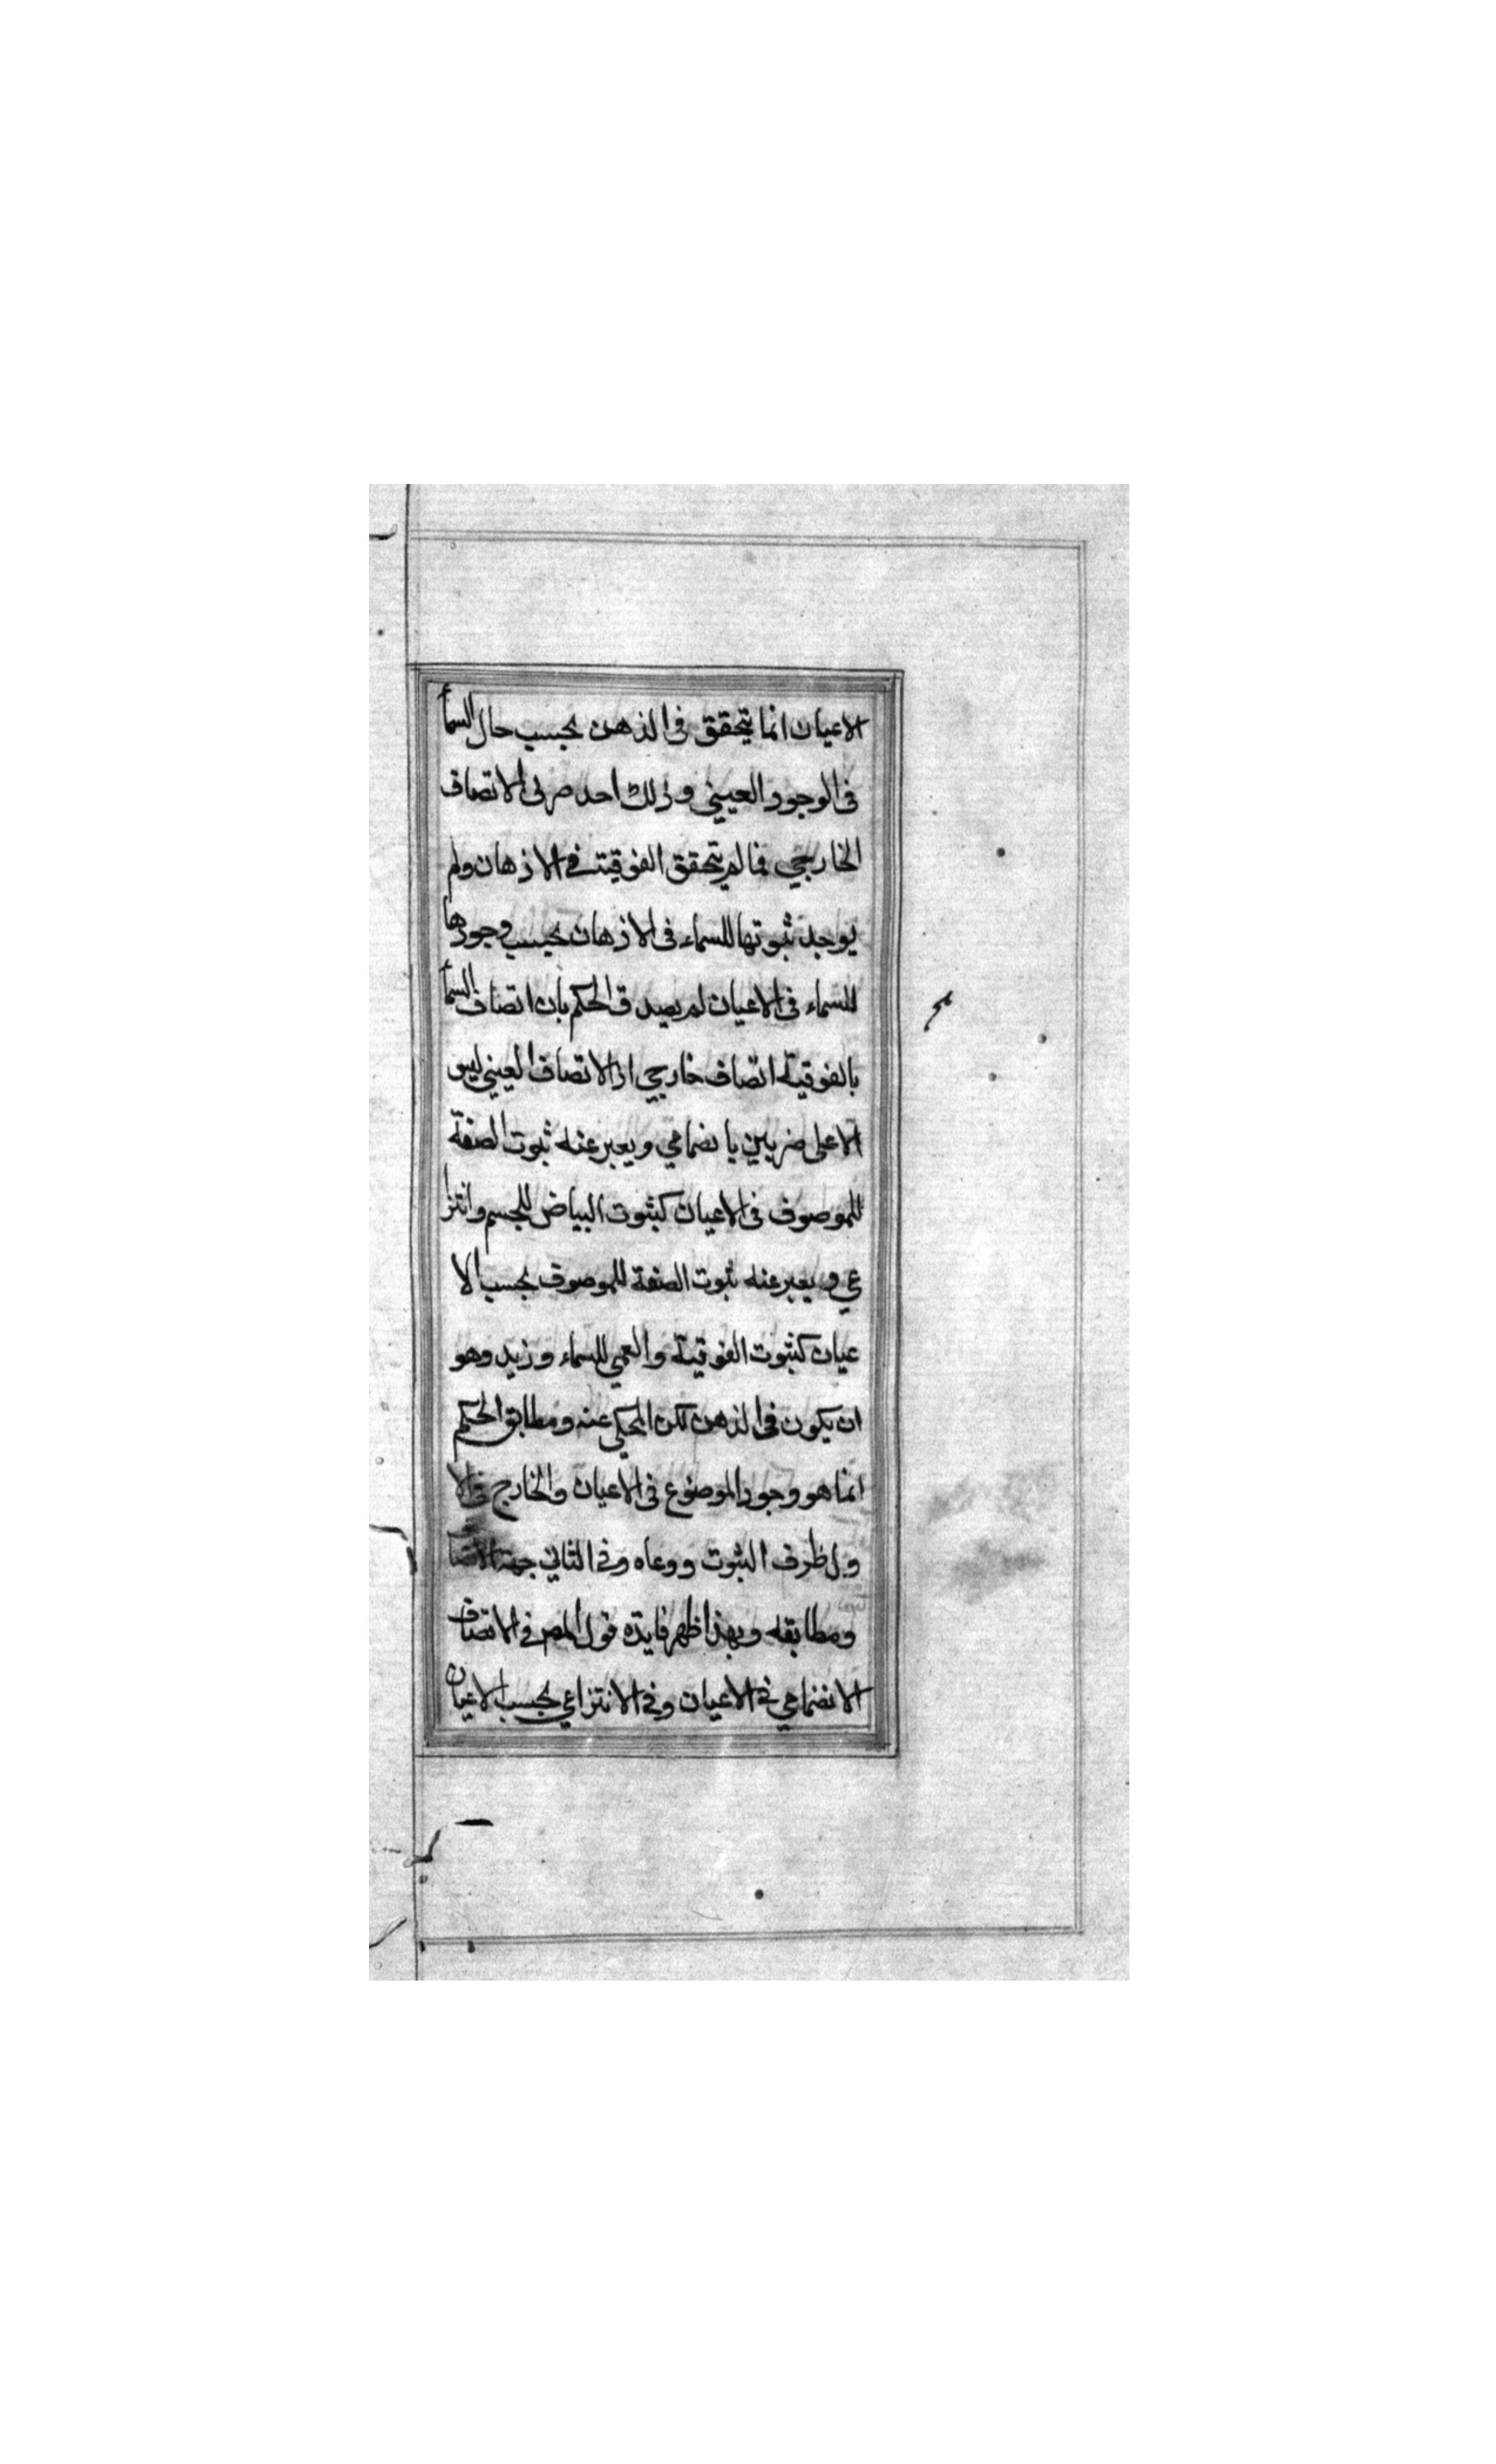 الاعيان انما يتحقق فى الذهن بحسب حال السمأ
فى الوجود العيني وذلك احد ضربى الاتصاف
الخارجي فما لم يتحقق الفوقية في الاذهان ولم
يوجد ثبوتها للسماء فى الاذهان بحسب وجودها
للسماء فى الاعيان لم يصدق الحكم بان اتصاف السمأ
بالفوقية اتصاف خارجي اذ الاتصاف العيني ليس
الا على ضربين يا نضمامي ويعبر عنه ثبوت الصفة
للموصوف فى الاعيان كثبوت البياض للجسم وانتزا
عي ويعبر عنه ثبوت الصفة للموصوف بحسب الا
عيان كثبوت الفوقية والعمي للسماء وزيد وهو
ان يكون فى الذهن لكن المحكي عنه ومطابق الحكم
انما هو وجود الموضوع فى الاعيان والخارج فى الا
ول ظرف الثبوت ووعاه وفى الثاني جهة الاتصا
ومطابقه وبهذا ظهر فايده قول المص في الاتصاف
الانضمامي في الاعيان وفي الانتزاعي بحسب الاعيان